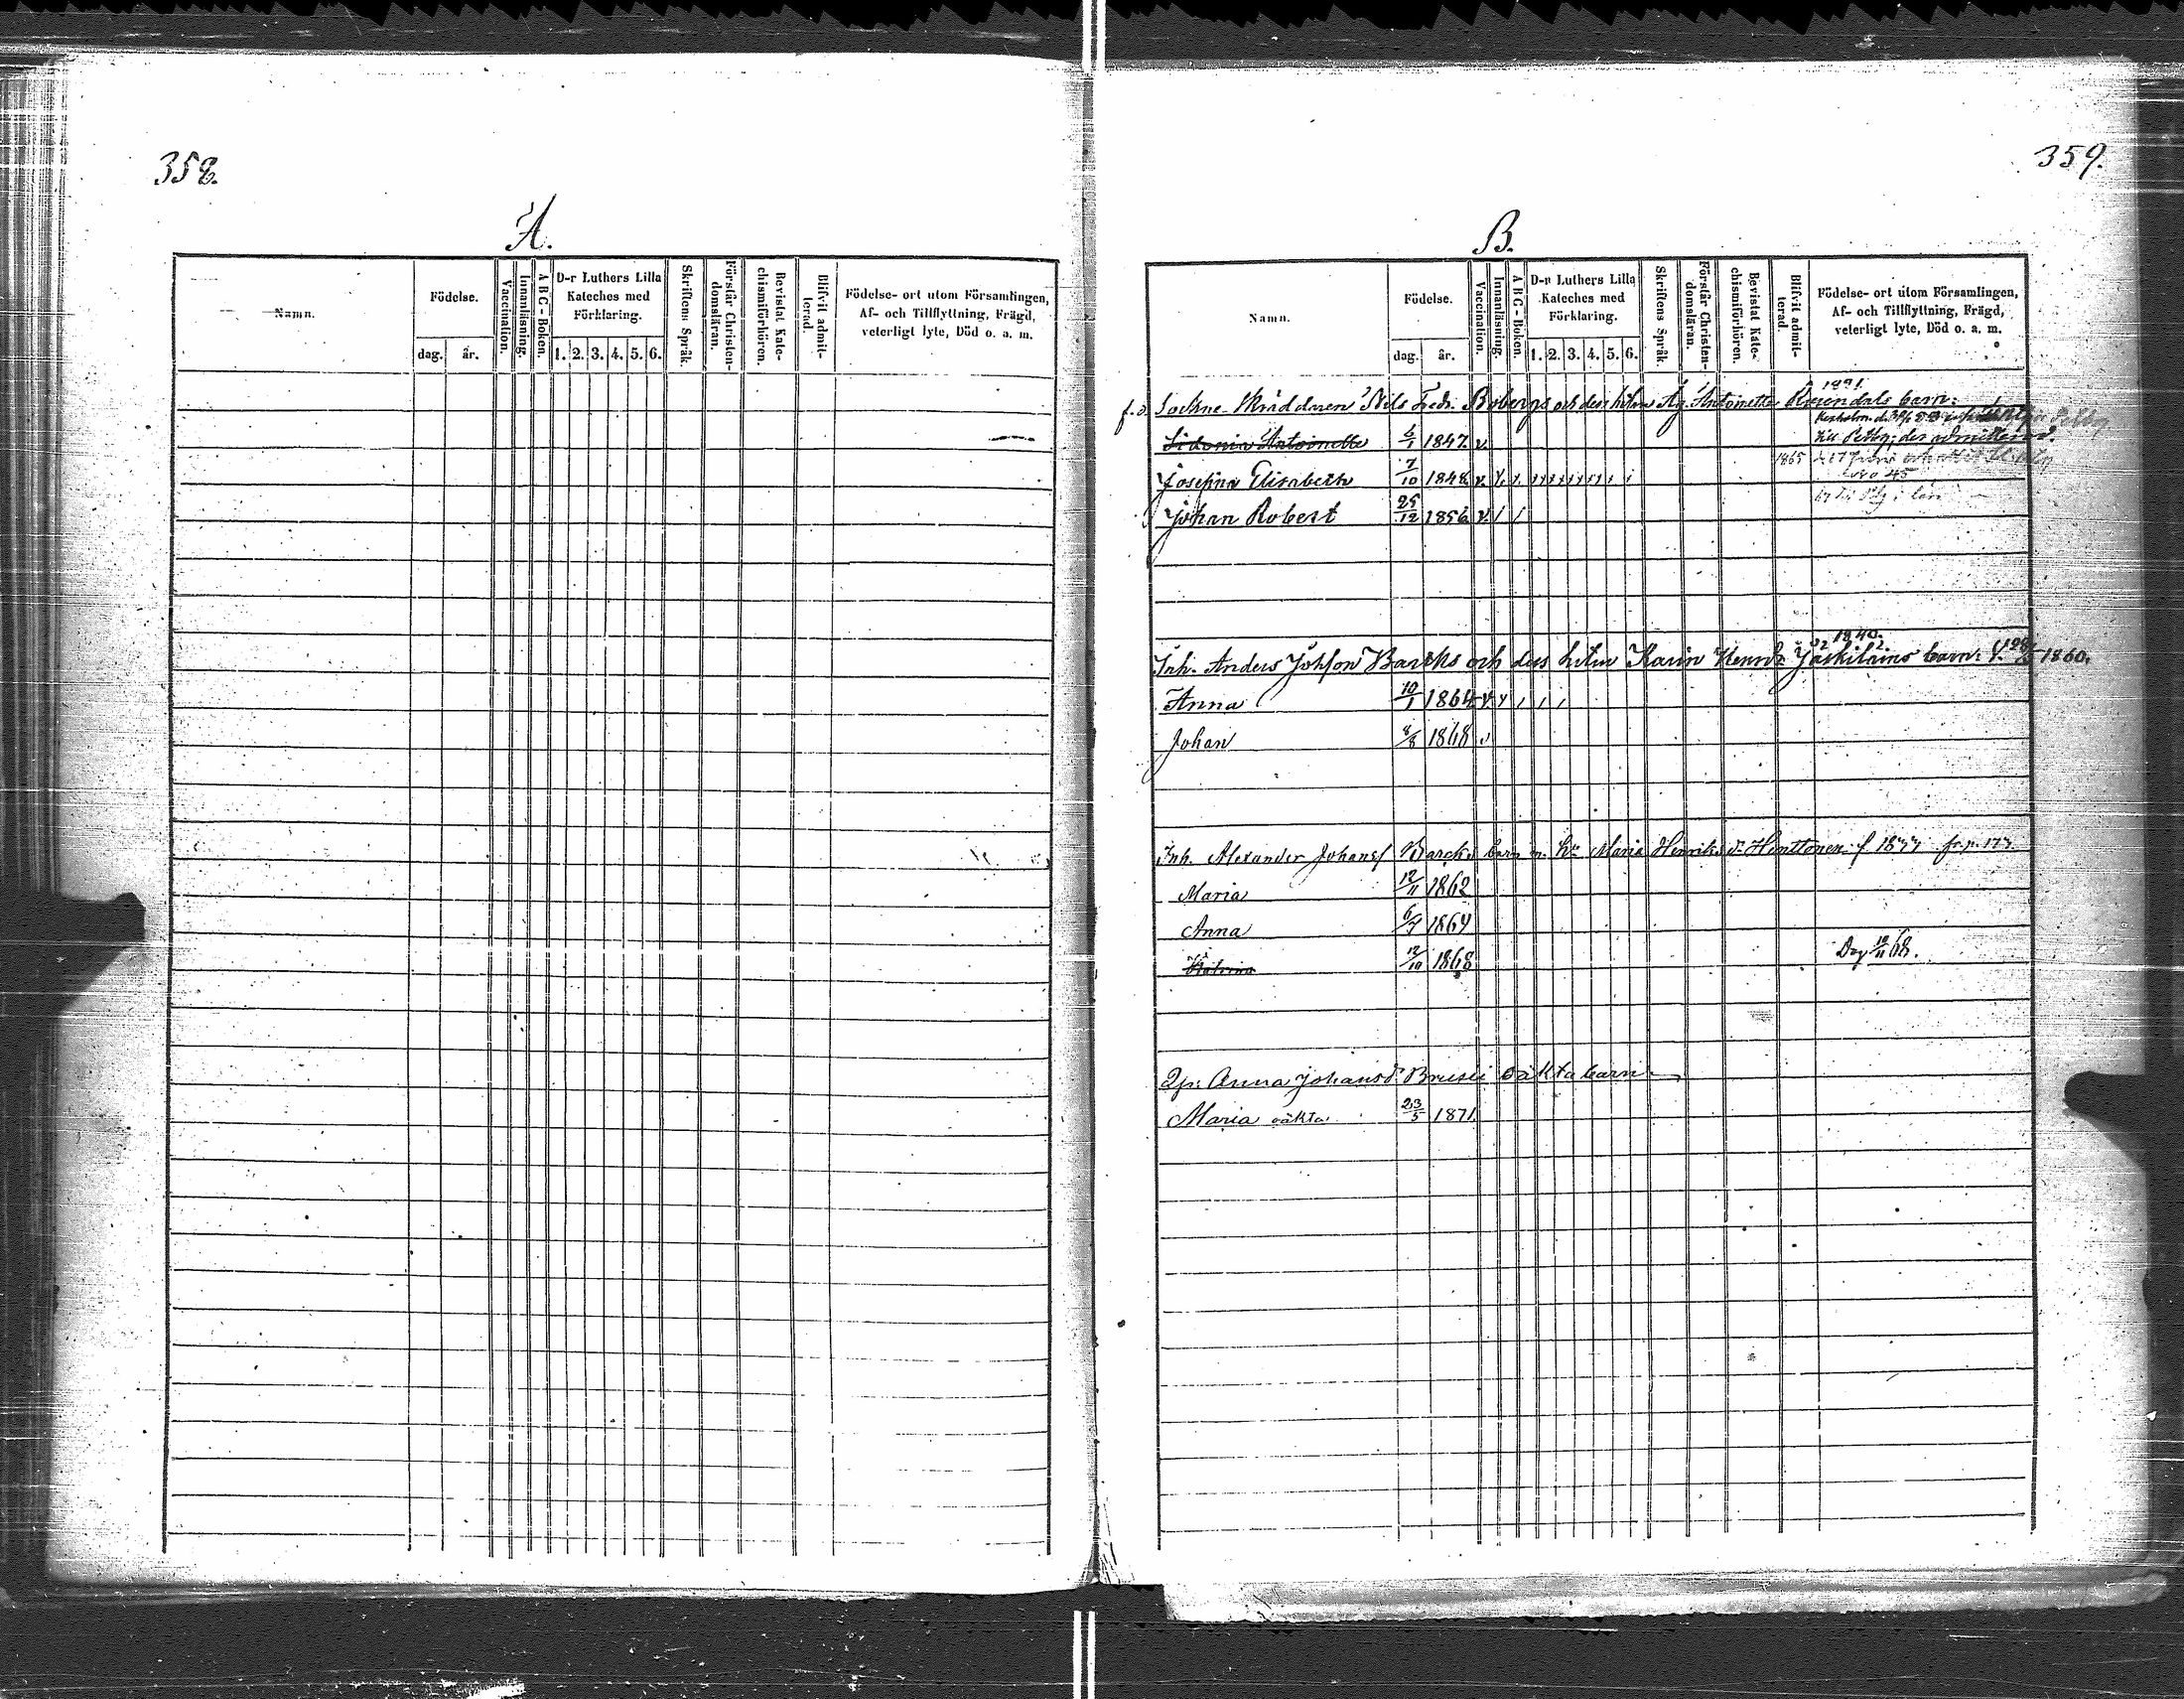 358.
A.
Namn.
Födelse.
dag.
år.
Vaccination.
Innanläsning.
A B C - Boken.
D-r Luthers Lilla
Kateches med
Förklaring.
1. 2. 3. 4. 5. 6.
Skriftens Språk.
Förstår Christen-
domsläran.
Bevistat Kate-
chismiförhören.
Blifvit admit-
terad.
Födelse- ort utom Församlingen,
Af- och Tillflyttning, Frägd,
veterligt lyte, Död o. a. m.
359.
B.
Namn.
Födelse.
dag.
år.
Vaccination.
Innanläsning.
A B C - Boken.
D-r Luthers Lilla
Kateches med
Förklaring.
1. 2. 3. 4. 5. 6.
Skriftens Språk.
Förstår Christen-
domsläran.
Bevistat Kate-
chismiförhören.
Blifvit admit-
terad.
Födelse- ort utom Församlingen,
Af- och Tillflyttning, Frägd,
veterligt lyte, Död o. a. m.
f.d. Sockne-Skräddaren Nils Fredr. Bobergs och dess hustru Antoinetta barn:
Sidonia Antoinette 6/1 1847 v.
Josephina Elisabeth 7/10 1848 v. 1865
Johan Robert 25/12 1856 v.
1840.
Inh. Anders Johsson Barcks och dess hstru Karin Henr. Jäskiläins barn: 1860.
Anna 10/1 1864 v
Johan 8/8 1868 v
Inh. Alexander Johans Barcks barn m. Maria Henriks dr Henttonen f 18 fr. p. 177
Maria 12/11 1862
Anna 6/9 1864
Katrina 12/10 1868 Dog 12/11 68.
Anna Johansdr Brusii oäkta barn
Maria oäkta 23/5 1871.